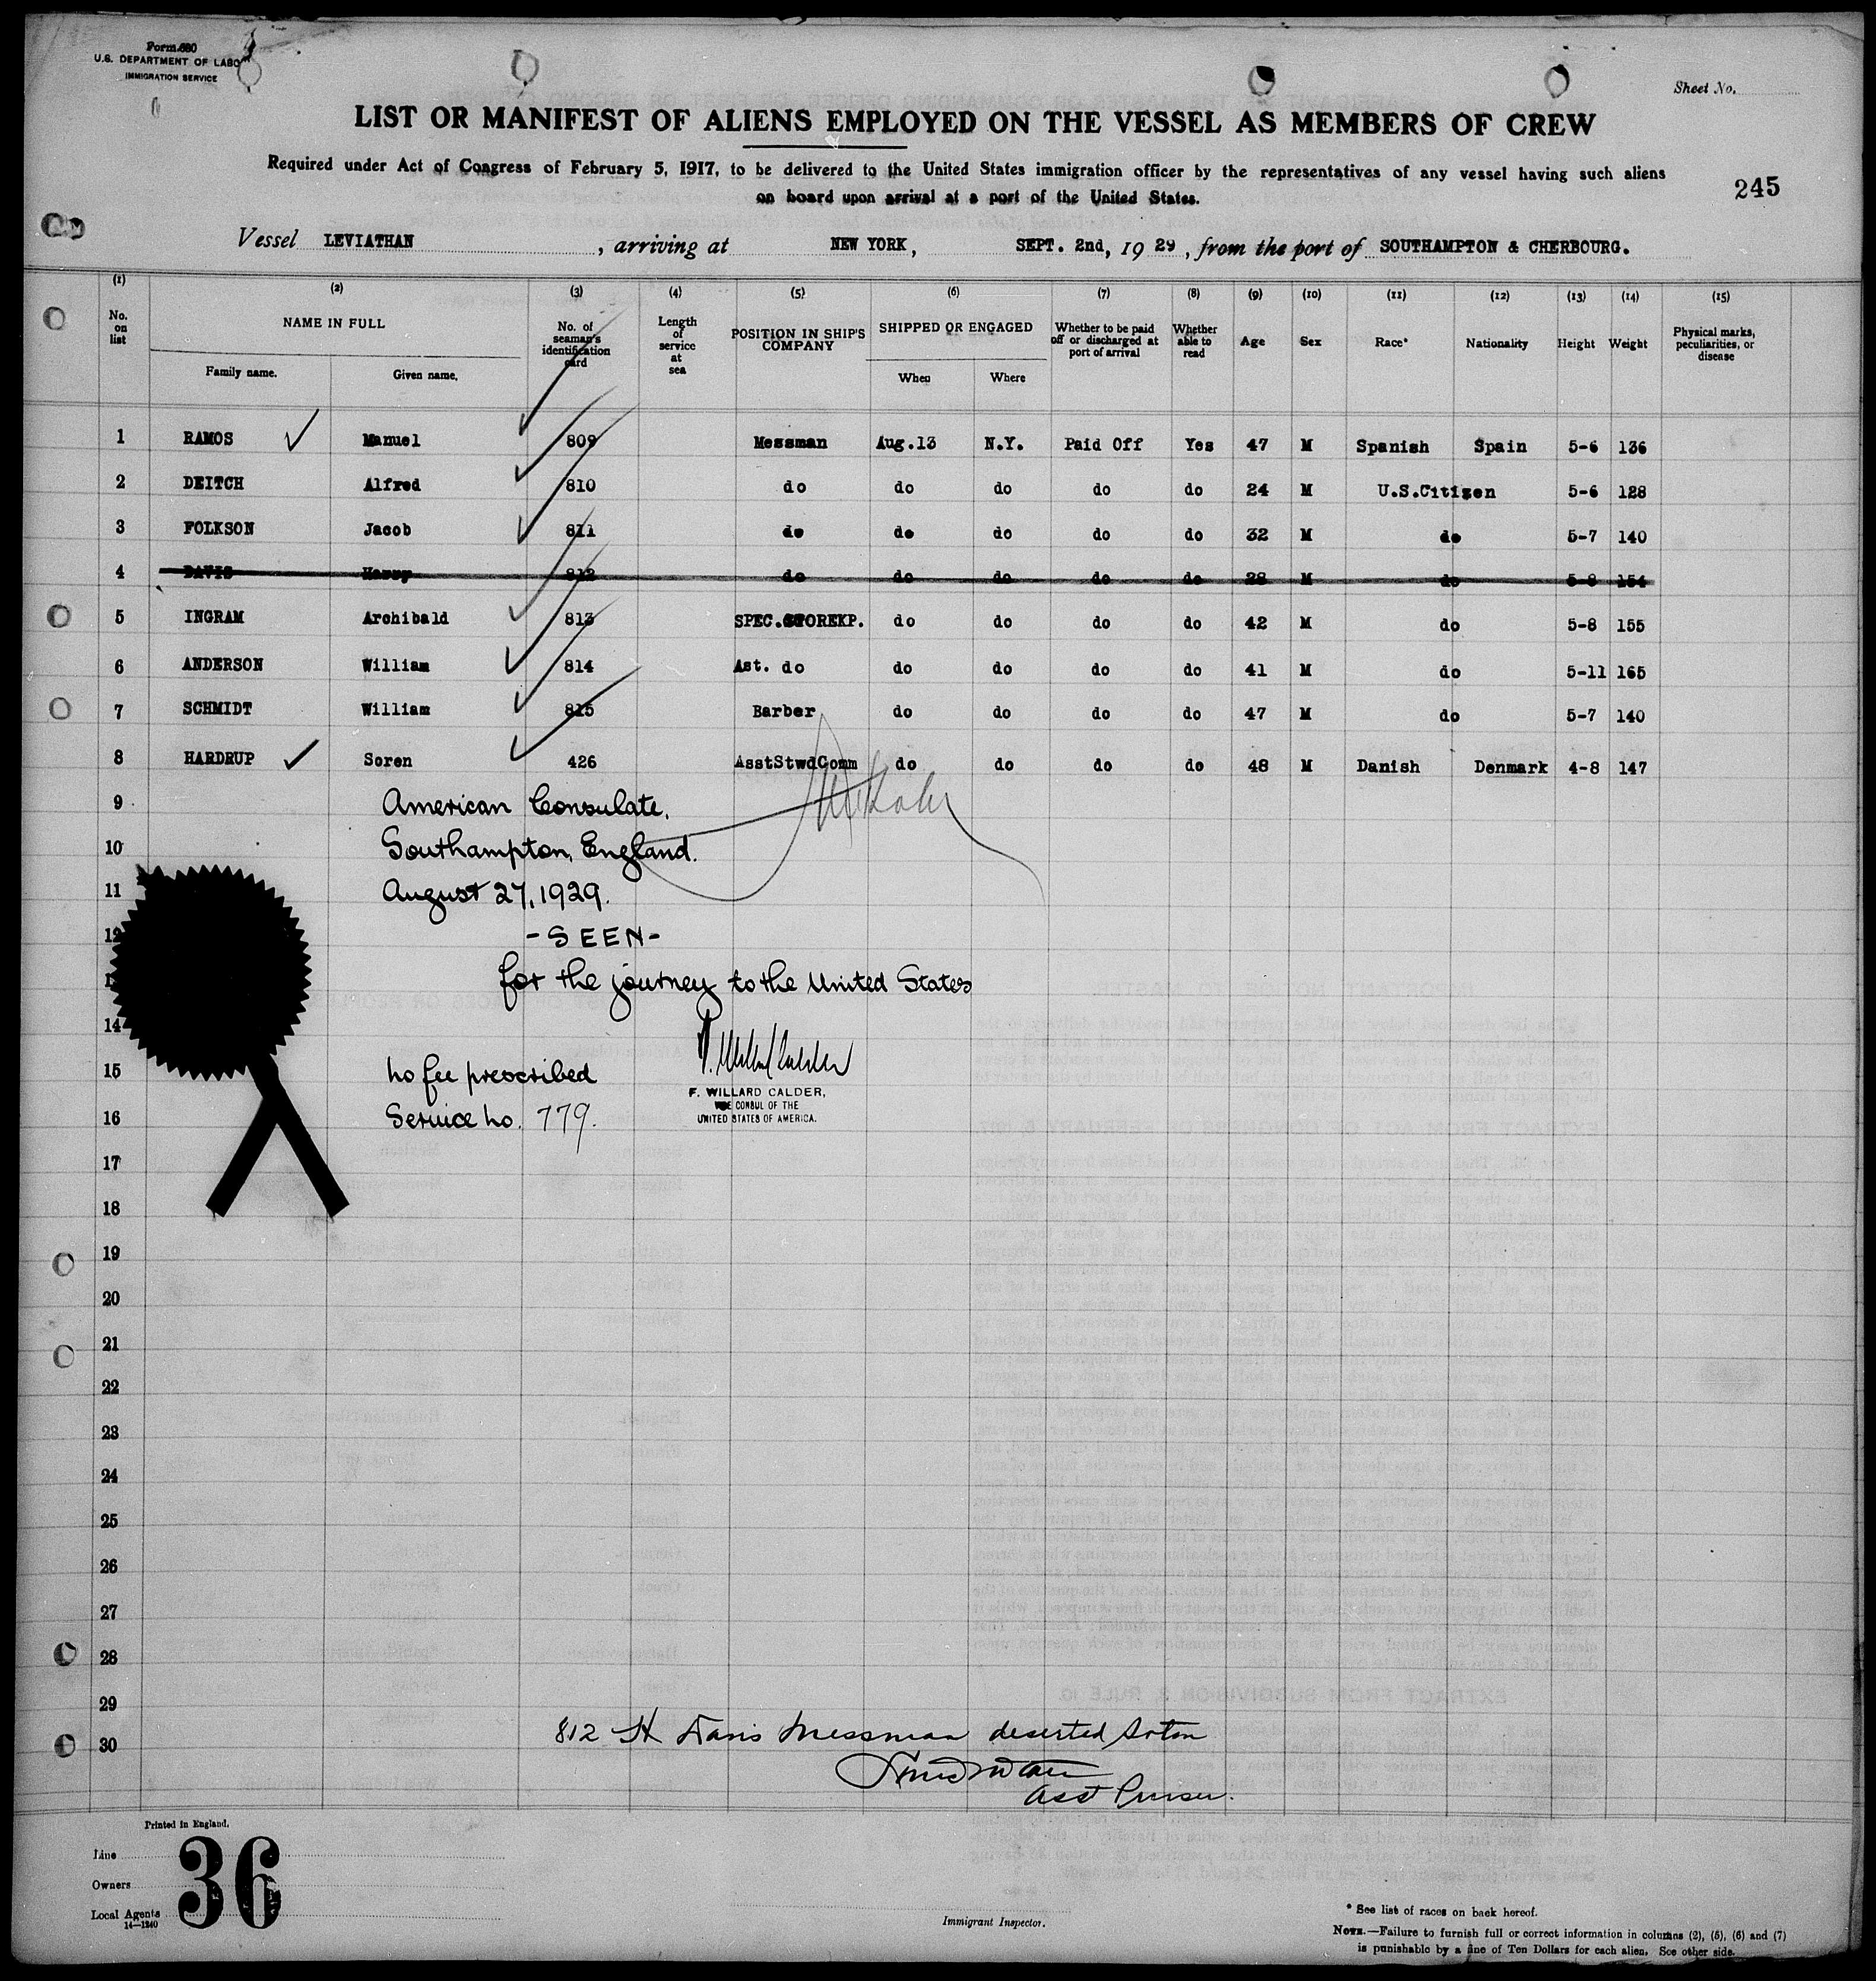 Form 680
U.S. DEPARTMENT OF LABOR
IMMIGRATION SERVICE
Sheet No.
LIST OR MANIFEST OF ALIENS EMPLOYED ON THE VESSEL AS MEMBERS OF CREW
Required under Act of Congress of February 5, 1917, to be delivered to the United States immigration officer by the representatives of any vessel having such aliens
on board upon arrival at a port of the United States.
245
Vessel LEVIATHAN, arriving at NEW YORK, SEPT. 2nd, 19 29, from the port of SOUTHAMPTON & CHERBOURG.
(1) (2) (3) (4) (5) (6) (7) (8) (9) (10) (11) (12) (13) (14) (15)
No. on list NAME IN FULL Family name. Given name. No. of seaman's identification card Length of service at sea POSITION IN SHIP'S COMPANY SHIPPED OR ENGAGED When Where Whether to be paid off or discharged at port of arrival Whether able to read Age Sex Race* Nationality Height Weight Physical marks, peculiarities, or disease
1 RAMOS Manuel 809 Messman Aug.13 N.Y. Paid Off Yes 47 M Spanish Spain 5-6 136
2 DEITCH Alfred 810 do do do do do 24 M U.S.Citizen 5-6 128
3 FOLKSON Jacob 811 do do do do do 32 M do 5-7 140
4 DAVIS Harry 812 do do do do do 28 M do 5-8 154
5 INGRAM Archibald 813 SPEC.STOREKP. do do do do 42 M do 5-8 155
6 ANDERSON William 814 Ast. do do do do do 41 M do 5-11 165
7 SCHMIDT William 815 Barber do do do do 47 M do 5-7 140
8 HARDRUP Soren 426 AsstStwdComm do do do do 48 M Danish Denmark 4-8 147
9 American Consulate,
10 Southampton, England.
11 August 27, 1929.
12 -SEEN-
for the journey to the United States
14
15 no fee prescribed
F. WILLARD CALDER,
VICE CONSUL OF THE
UNITED STATES OF AMERICA.
16 Service no. 779.
17
18
19
20
21
22
23
24
25
26
27
28
29
30 812 H Davis Messman deserted Soton
Asst Purser.
Printed in England.
Line
Owners
Local Agents
14—1240
36
Immigrant Inspector.
* See list of races on back hereof.
NOTE.—Failure to furnish full or correct information in columns (2), (5), (6) and (7)
is punishable by a fine of Ten Dollars for each alien. See other side.